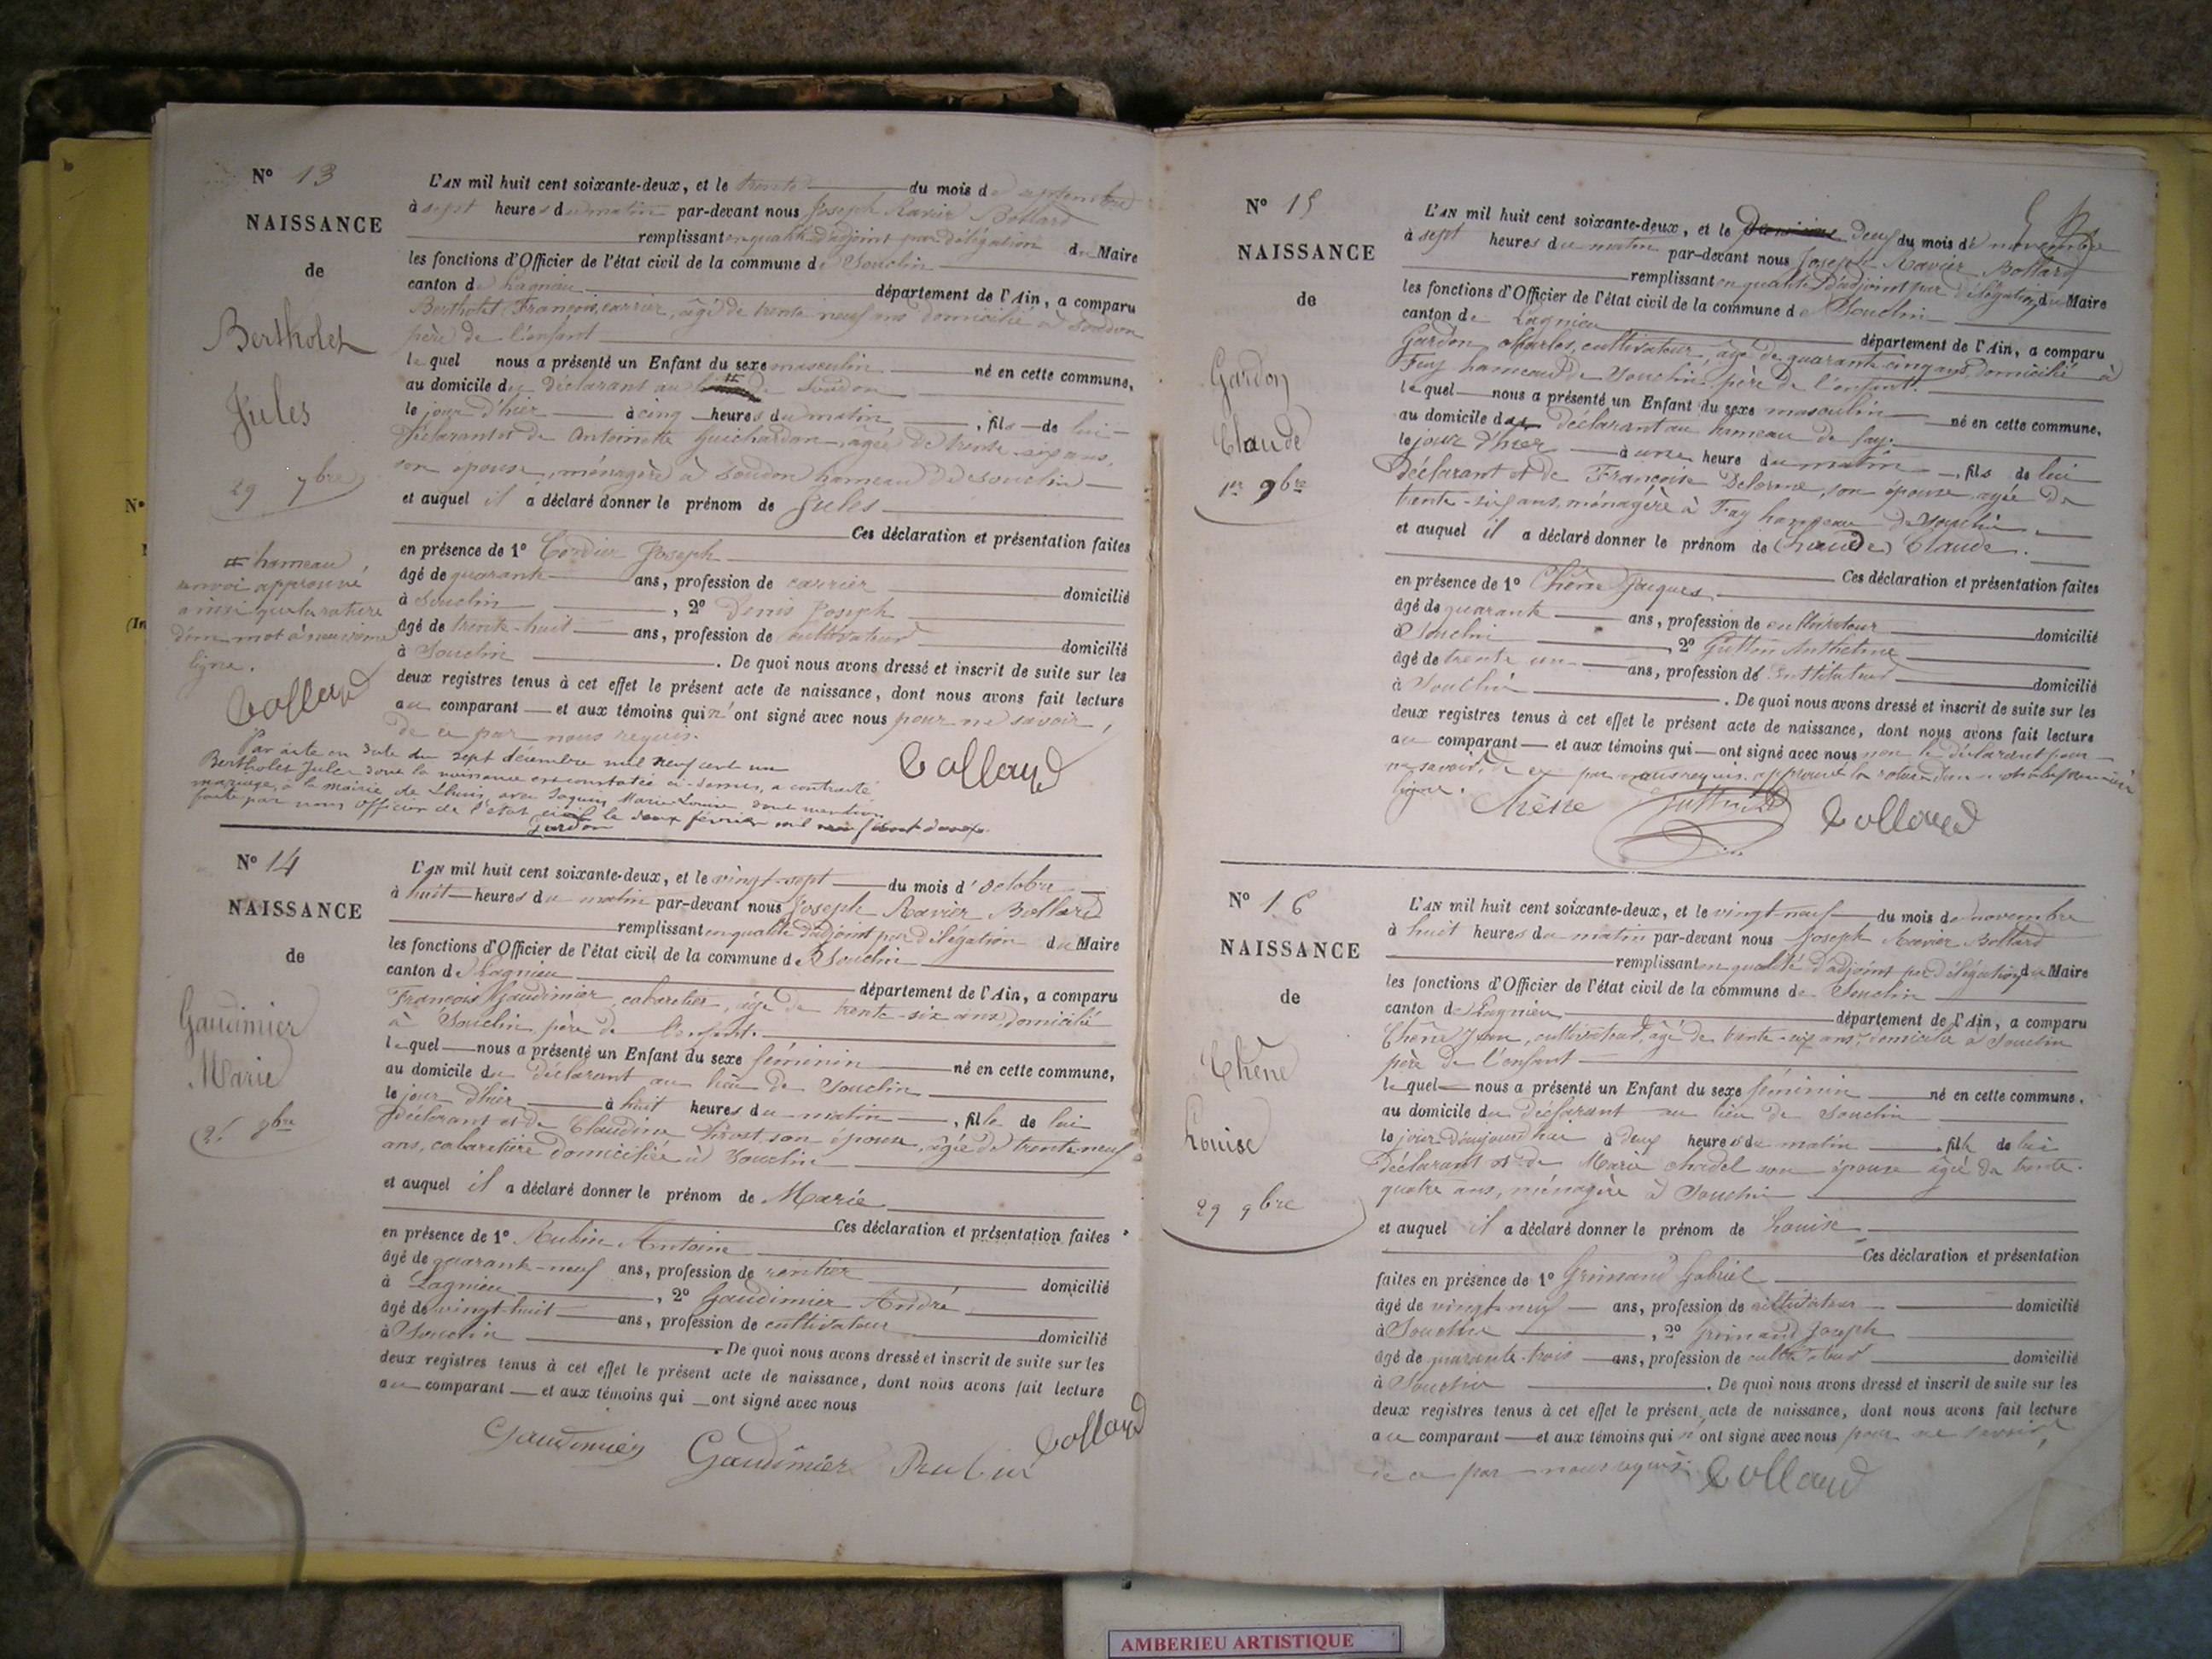 N° 13
NAISSANCE
de
Bertholet
Jules
29 7bre
# hameau
renvoi approuvé
ainsi que la rature
d'un mot à neuvième
ligne.
Bollard
L'AN mil huit cent soixante-deux, et le trente du mois de septembre
à sept heures du matin par-devant nous Joseph Ravier Bollard
remplissant en qualité d'adjoint par délégation du Maire
les fonctions d'Officier de l'état civil de la commune de Souclin
canton de Lagnieu département de l'Ain, a comparu
Bertholet François, carrier, âgé de trente neuf ans domicilié à Soudon
père de l'enfant
lequel nous a présenté un Enfant du sexe masculin né en cette commune,
au domicile du déclarant au # de Soudon
le jour d'hier à cinq heures du matin, fils de lui
déclarant et de Antoinette Guichardon, âgée de trente six ans,
son épouse, ménagère à Soudon hameau de Souclin
et auquel il a déclaré donner le prénom de Jules
Ces déclaration et présentation faites
en présence de 1° Cordier Joseph
âgé de quarante ans, profession de carrier domicilié
à Souclin, 2° Denis Joseph
âgé de trente-huit ans, profession de cultivateur domicilié
à Souclin. De quoi nous avons dressé et inscrit de suite sur les
deux registres tenus à cet effet le présent acte de naissance, dont nous avons fait lecture
au comparant et aux témoins qui n'ont signé avec nous pour ne savoir,
de ce par nous requis.
Bollard
Par acte en date du sept décembre mil neuf cent un
Bertholet Jules dont la naissance est constatée ci-dessus, a contracté
mariage, à la mairie de Lhuis, avec Marie Louise, dont mention
faite par nous officier de l'état civil le deux février mil neuf cent deux.
Gardon
N° 14
NAISSANCE
de
Gaudinier
Marie
26 8bre
L'AN mil huit cent soixante-deux, et le vingt-sept du mois d'octobre
à huit heures du matin par-devant nous Joseph Ravier Bollard
remplissant en qualité d'adjoint par délégation du Maire
les fonctions d'Officier de l'état civil de la commune de Souclin
canton de Lagnieu département de l'Ain, a comparu
François Gaudinier, cabaretier, âgé de trente-six ans, domicilié
à Souclin, père de l'enfant.
lequel nous a présenté un Enfant du sexe féminin né en cette commune,
au domicile du déclarant au lieu de Souclin
le jour d'hier à huit heures du matin, fille de lui
déclarant et de Claudine son épouse, âgée de trente-neuf
ans, cabaretière domiciliée à Souclin
et auquel il a déclaré donner le prénom de Marie
Ces déclaration et présentation faites
en présence de 1° Rubin Antoine
âgé de quarante-neuf ans, profession de rentier domicilié
à Lagnieu, 2° Gaudinier André
âgé de vingt-huit ans, profession de cultivateur domicilié
à Souclin. De quoi nous avons dressé et inscrit de suite sur les
deux registres tenus à cet effet le présent acte de naissance, dont nous avons fait lecture
au comparant et aux témoins qui ont signé avec nous
Gaudinier Gaudinier Rubin Bollard
N° 15
NAISSANCE
de
Gardon
Claude
1er 9bre
L'AN mil huit cent soixante-deux, et le deux du mois de novembre
à sept heures du matin par-devant nous Joseph Ravier Bollard
remplissant en qualité d'adjoint par délégation du Maire
les fonctions d'Officier de l'état civil de la commune de Souclin
canton de Lagnieu département de l'Ain, a comparu
Gardon Charles, cultivateur, âgé de quarante-cinq ans, domicilié à
Fay hameau de Souclin, père de l'enfant.
lequel nous a présenté un Enfant du sexe masculin né en cette commune,
au domicile du déclarant au hameau de Fay
le jour d'hier à une heure du matin, fils de lui
déclarant et de Françoise Delorme, son épouse âgée de
trente-six ans, ménagère à Fay hameau de Souclin
et auquel il a déclaré donner le prénom de Claude.
Ces déclaration et présentation faites
en présence de 1° Chêne Jacques
âgé de quarante ans, profession de cultivateur domicilié
à Souclin, 2° Guttin Anthelme
âgé de trente un ans, profession de instituteur domicilié
à Souclin. De quoi nous avons dressé et inscrit de suite sur les
deux registres tenus à cet effet le présent acte de naissance, dont nous avons fait lecture
au comparant et aux témoins qui ont signé avec nous non le déclarant pour
ne savoir, de ce par nous requis. approuvé la rature d'un mot à la première
ligne.
Chêne Guttin Bollard
N° 16
NAISSANCE
de
Chêne
Louise
29 9bre
L'AN mil huit cent soixante-deux, et le vingt-neuf du mois de novembre
à huit heures du matin par-devant nous Joseph Ravier Bollard
remplissant en qualité d'adjoint par délégation du Maire
les fonctions d'Officier de l'état civil de la commune de Souclin
canton de Lagnieu département de l'Ain, a comparu
Chêne Jean, cultivateur, âgé de trente-six ans, domicilié à Souclin
père de l'enfant
lequel nous a présenté un Enfant du sexe féminin né en cette commune,
au domicile du déclarant au lieu de Souclin
le jour d'aujourd'hui à deux heures du matin, fille de lui
déclarant et de Marie Chadel son épouse âgée de trente-
quatre ans, ménagère à Souclin
et auquel il a déclaré donner le prénom de Louise
Ces déclaration et présentation
faites en présence de 1° Grimand Gabriel
âgé de vingt-neuf ans, profession de cultivateur domicilié
à Souclin, 2° Grimand Joseph
âgé de quarante-trois ans, profession de cultivateur domicilié
à Souclin. De quoi nous avons dressé et inscrit de suite sur les
deux registres tenus à cet effet le présent acte de naissance, dont nous avons fait lecture
au comparant et aux témoins qui n'ont signé avec nous pour ne savoir,
de ce par nous requis. Bollard
AMBERIEU ARTISTIQUE